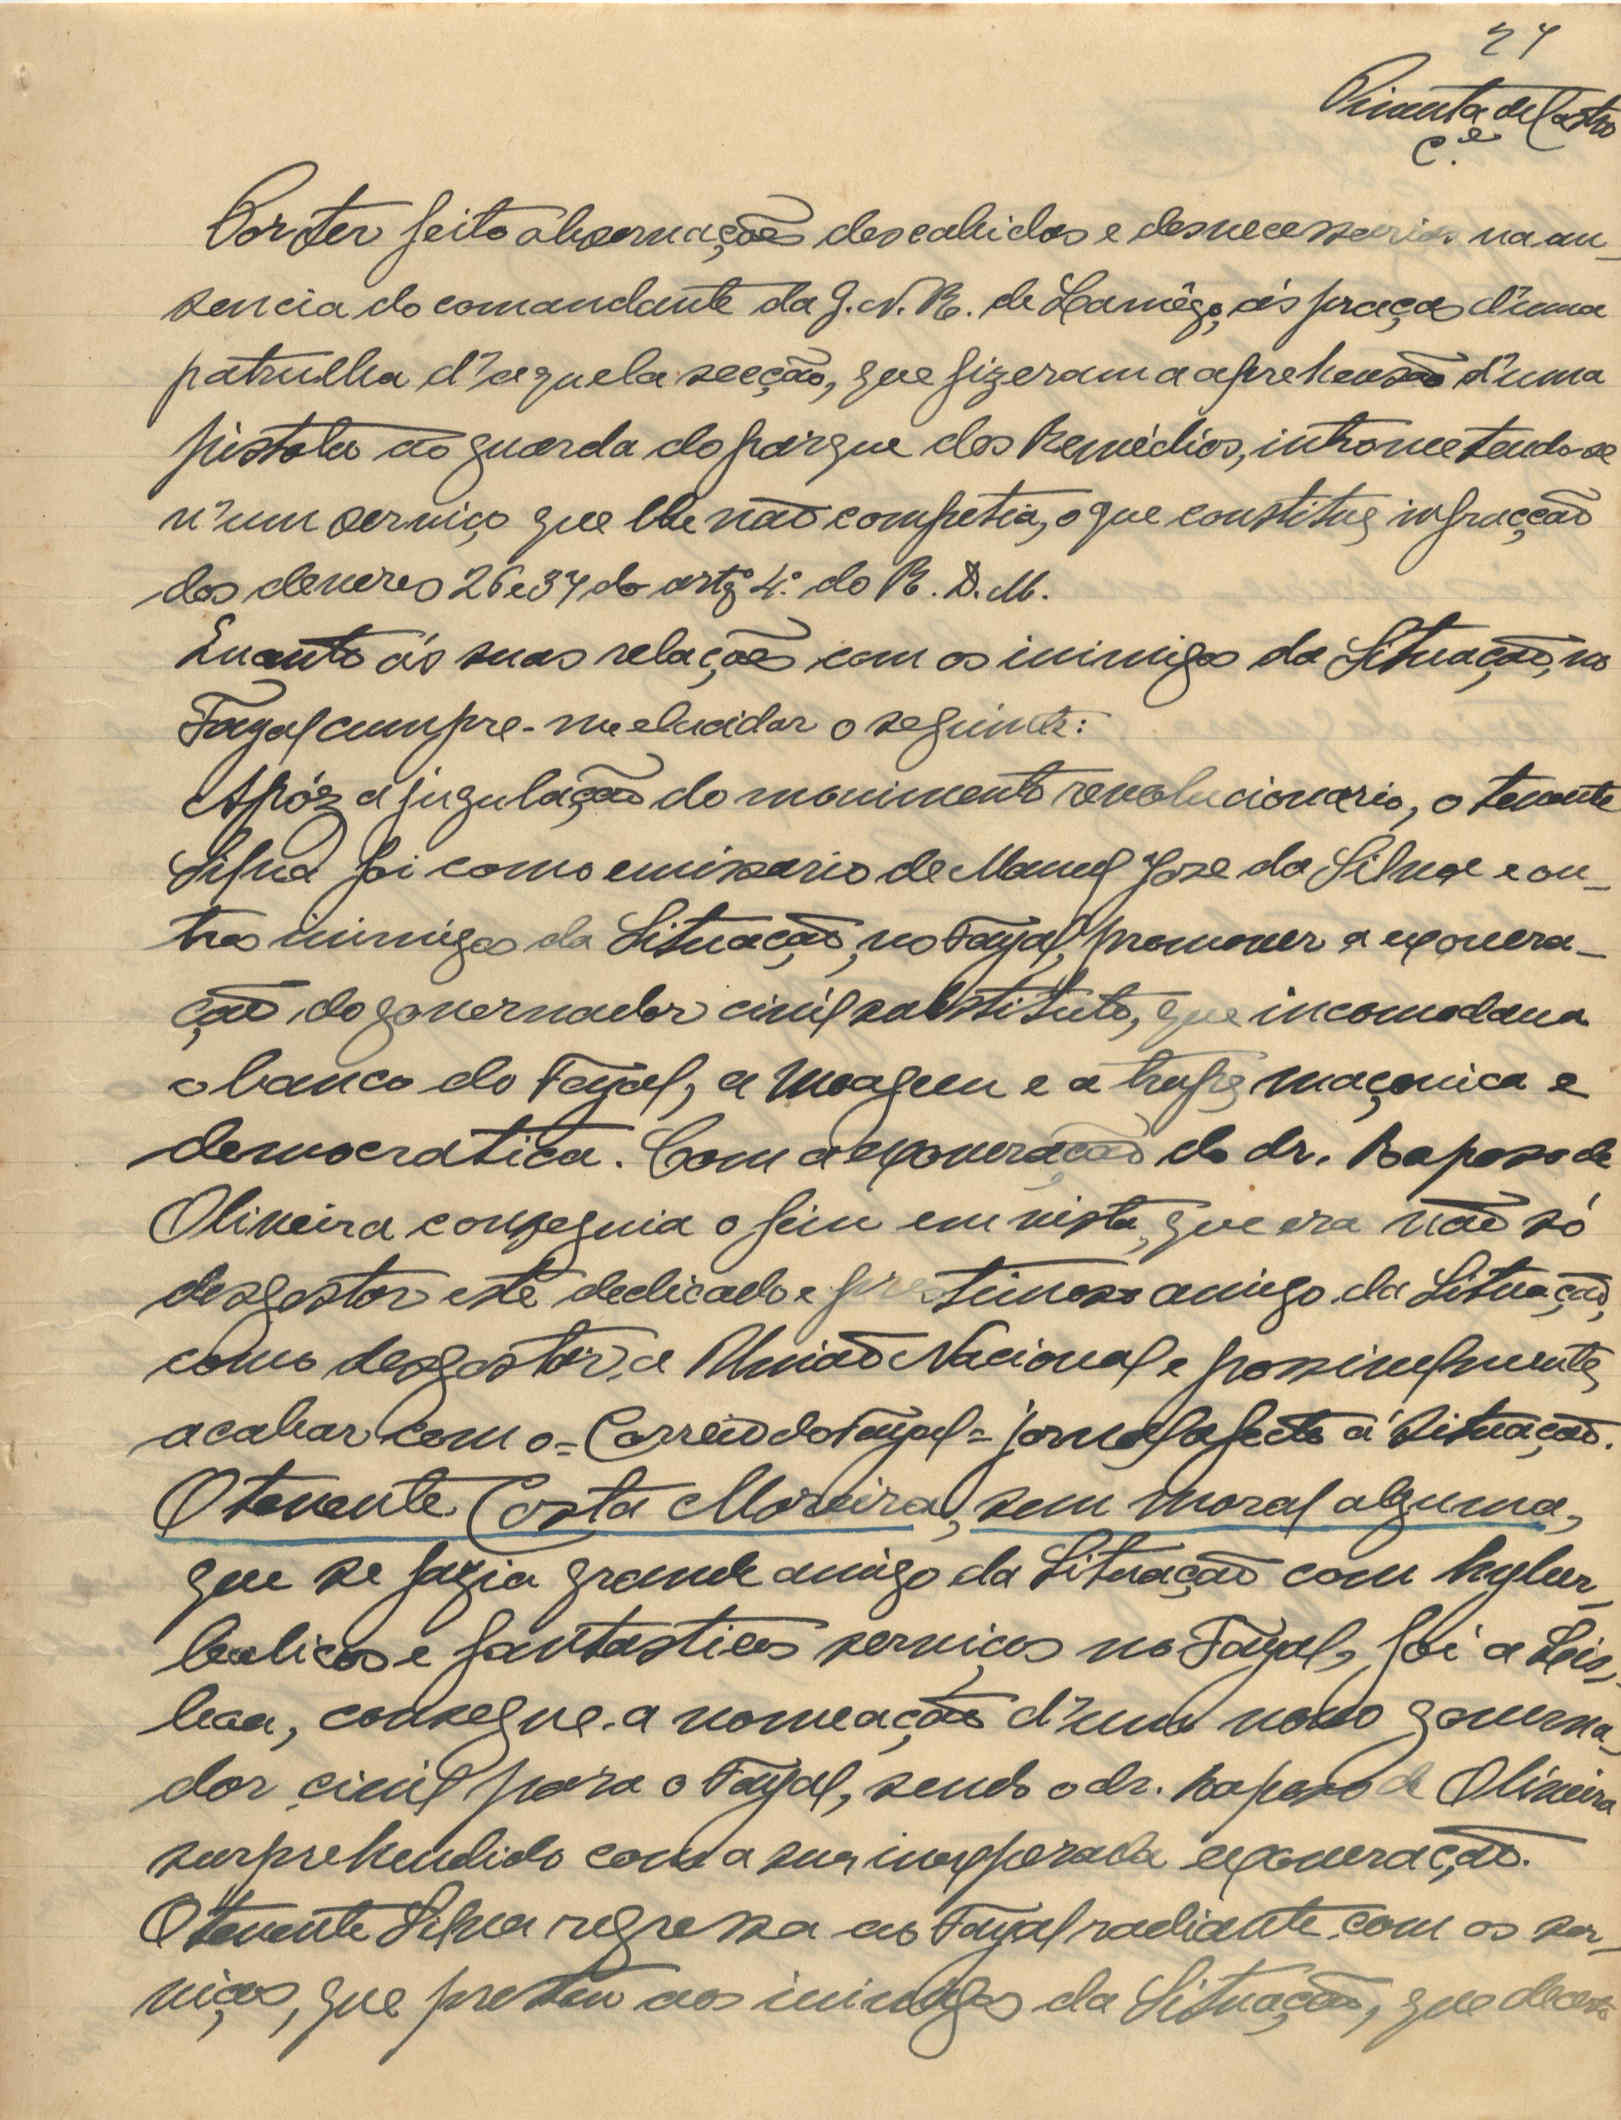 27
Pimenta de Castro
C.el
Por ter feito observações descabidas e desnecessarias na au-
sencia do comandante da G.N.R. de Lamêgo, ás praças d'uma
patrulha d'aquela secção, que fizeram a aprehensão d'uma
pistola ao guarda do parque dos Remédios, intrometendo-se
n'um serviço que lhe não competia, o que constitue infracção
dos deveres 26 e 37 do artgº 4.º do R.D.M.
Quanto ás suas relações com os inimigos da Situação, no
Fayal cumpre-me elucidar o seguinte:
Apóz a jugulação do movimento revolucionario, o tenente
Silva foi como emissario de Manuel José da Silva e ou-
tros inimigos da Situação, no Fayal, promover a exonera-
ção do governador civil substituto, que incomodava
o banco do Fayal, a Moagem e a trupe maçonica e
democratica. Com a exoneração do dr. Raposo de
Oliveira conseguia o fim em vista, que era não só
desgostar este dedicado e prestimoso amigo da Situação,
como desgostar a União Nacional e possivelmente,
acabar com o = Correio do Fayal = jornal afecto á Situação.
O tenente Costa Moreira, sem moral alguma,
que se fazia grande amigo da Situação com hyber-
bolicos e fantasticos serviços no Fayal, foi a Lis-
boa, consegue a nomeação d'um novo governa-
dor civil para o Fayal, sendo o dr. Raposo de Oliveira
surprehendido com a sua inesperada exoneração.
O tenente Silva regressa ao Fayal radiante com os ser-
viços, que prestou aos inimigos da Situação, que